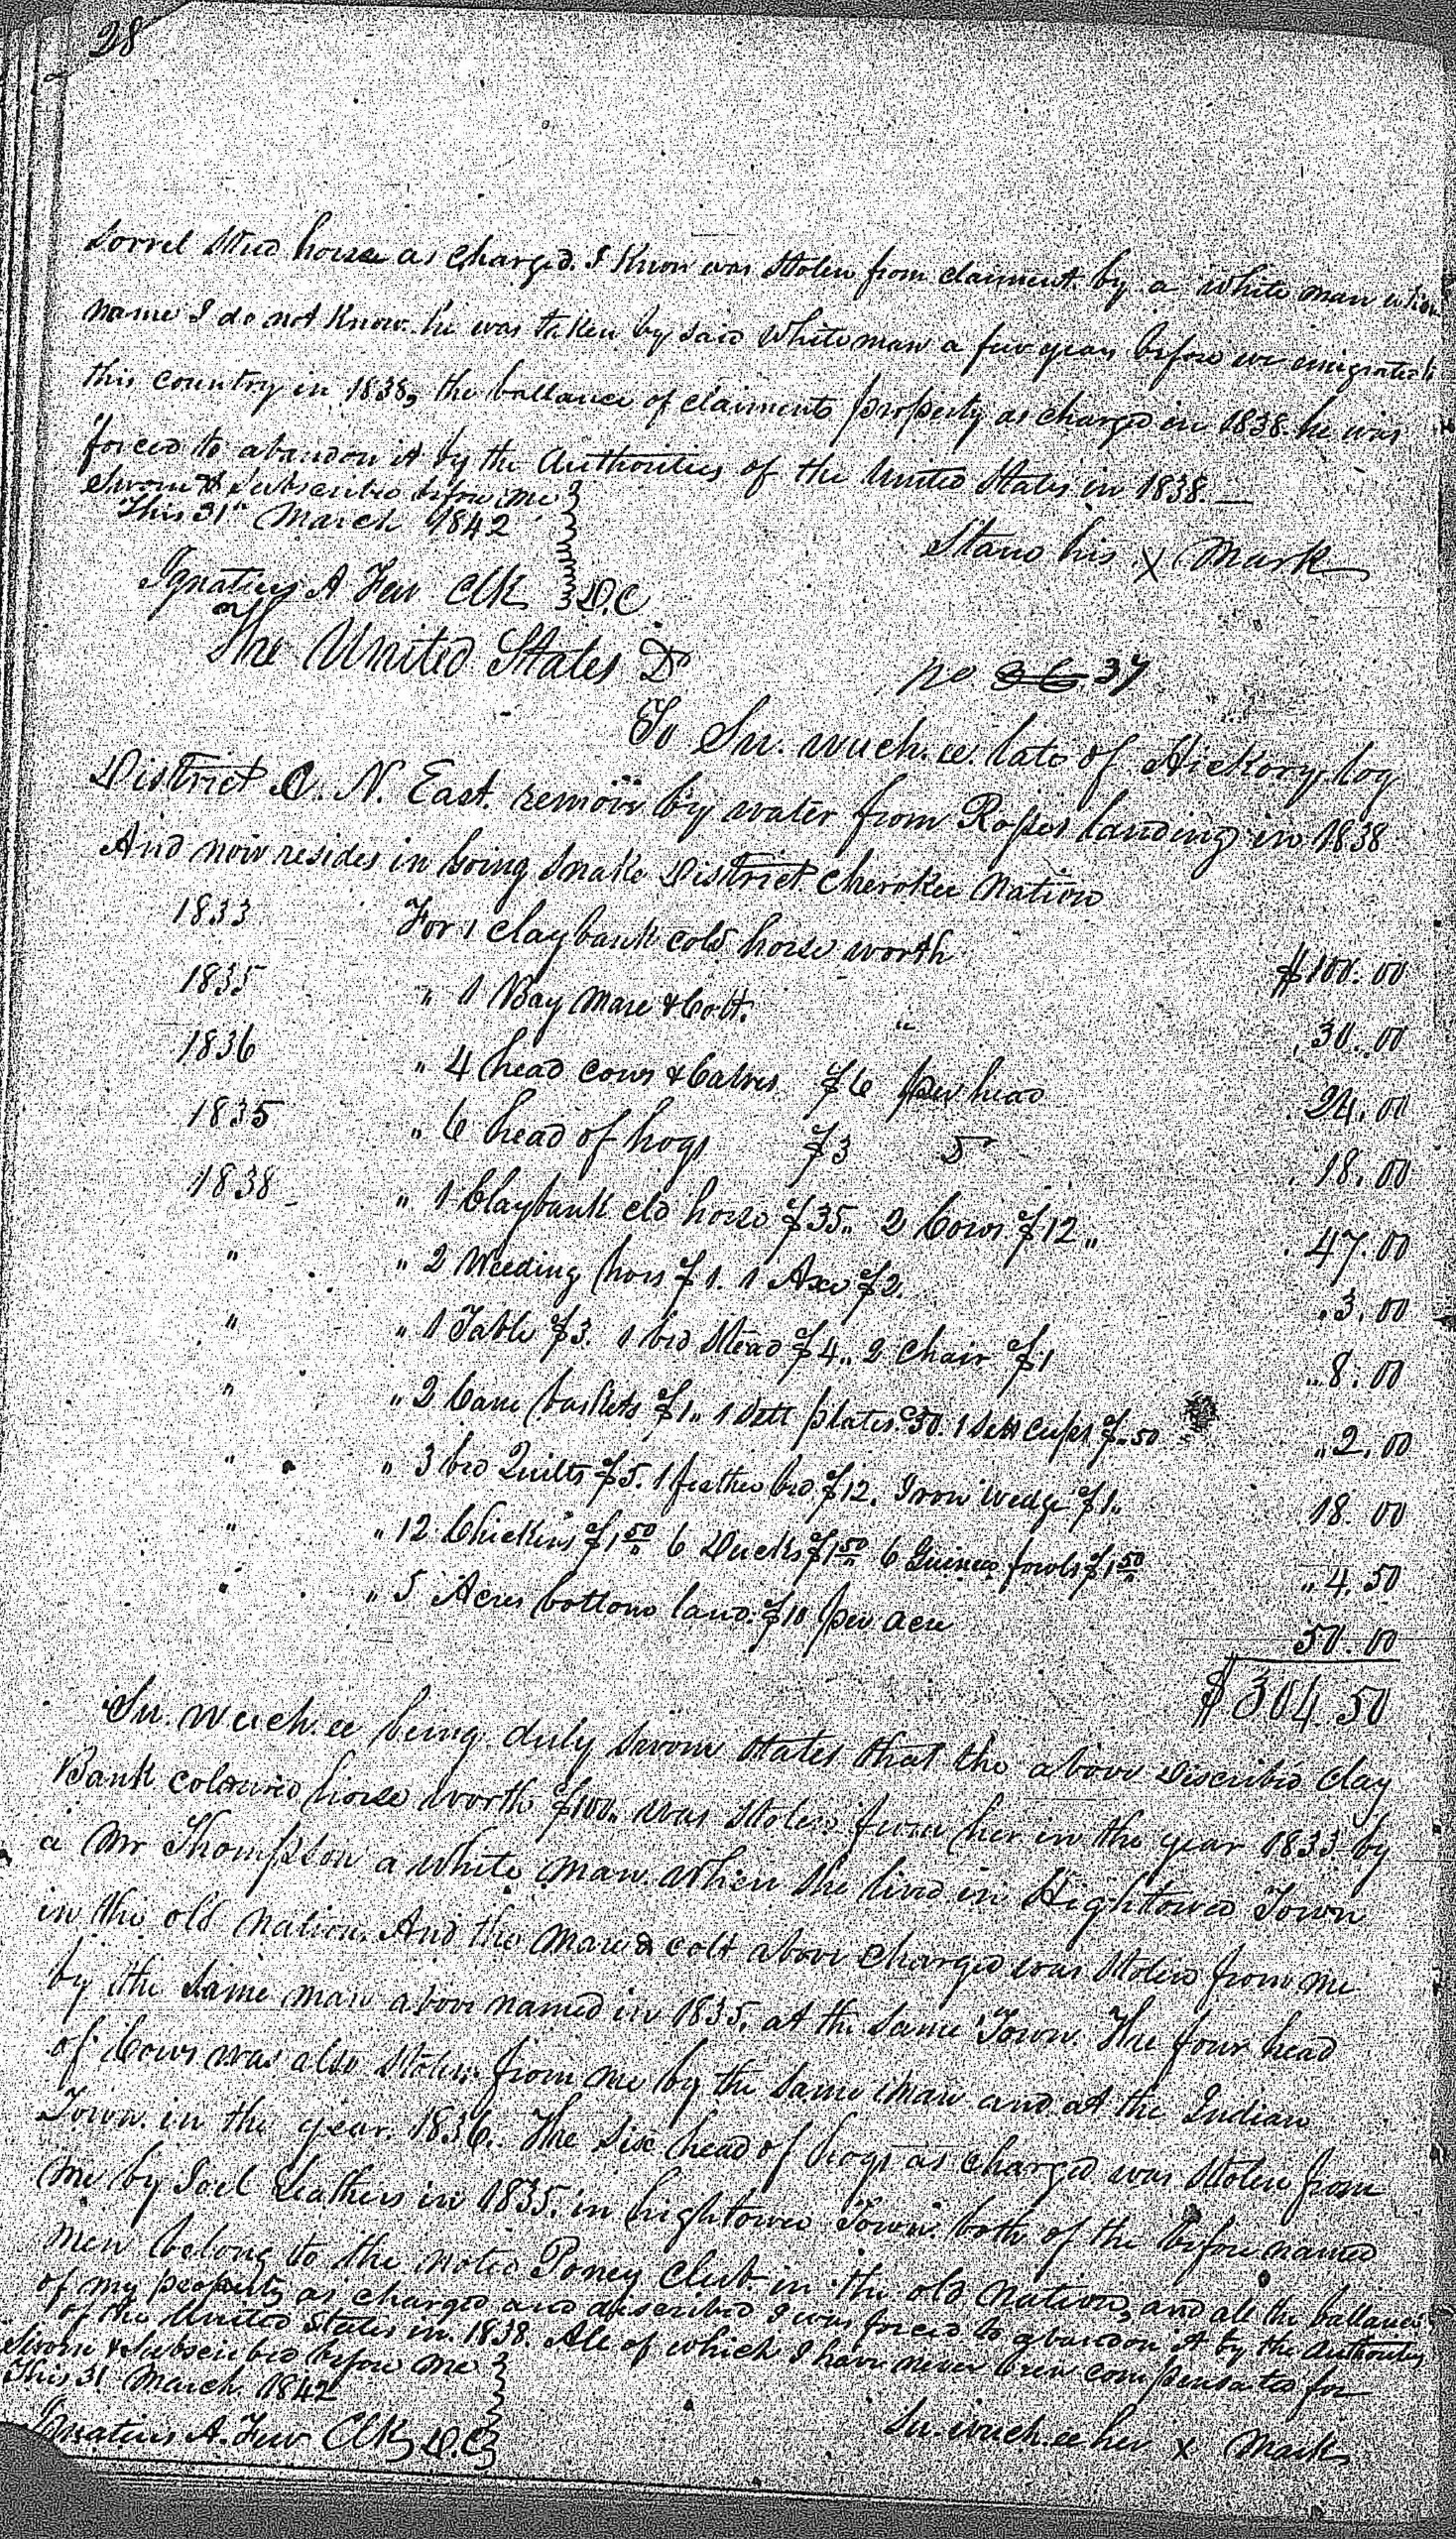 28
sorrel Stud horse as charged. I Know was stolen from claiment by a white man whose
name I do not Know. he was taken by said white man a few years before we emigrated to
this country in 1838, the ballance of claiments property as charged in 1838 he was
forced to abandon it by the Authorities of the United States in 1838. —
Sworn & Subscribed before me
This 31st March 1842
Stand his X Mark
Ignatius A Few Clk D.C
The United States Dr
No 36 37
To Su. wuch. ee. late of Hickory log
District C. N. East. remove by water from Rosses landing in 1838
And now resides in Going Snake District Cherokee Nation
1833 For 1 claybank cold horse worth $100.00
1835 " 1 Bay Mare & Colt. " 30.00
1836 " 4 head cows & Calves $6 per head 24.00
1835 " 6 head of hogs $3 " 18.00
1838 " 1 Claybank cld horse $35" 2 Cows $12" 47.00
" " 2 Weeding hoes $1. 1 Axe $2. 3.00
" " 1 Table $3. 1 bed Stead $4" 2 chair $1 8.00
" " 2 Cane baskets $1" 1 sett plates .50. 1 Sett cups $.50 2.00
" " 3 bed Quilts $5. 1 feather bed $12. Iron wedge $1" 18.00
" " 12 Chickins $1 50 6 Ducks $1 50 6 Guinea fowls $1 50 4.50
" " 5 Acres bottom land. $10 per acre 50.00
$304.50
Su. wuch. ee being duly sworn states that the above discribed Clay
Bank coloured horse worth $100" was stolen from her in the year 1833 by
a Mr Thompson a white man when she lived in Hightower Town
in the old nation. And the mare & colt above charged was stolen from me
by the same man above named in 1835. at the same Town. The four head
of Cows was also stolen from me by the same man and at the Indian
Town in the year 1836. The six head of hogs as charged was stolen from
me by Joel Leathers in 1835. in hightower Town. both of the before named
men belong to the noted Poney Club in the old Nation, and all the ballance
of my property as charged and discribed I was forced to abandon it by the authorities
of the United States in 1838. All of which I have never been compensated for
Sworn & Subscribed before me
This 31 March 1842
Ignatius A. Few Clk D.C
Su. wuch. ee her X Mark